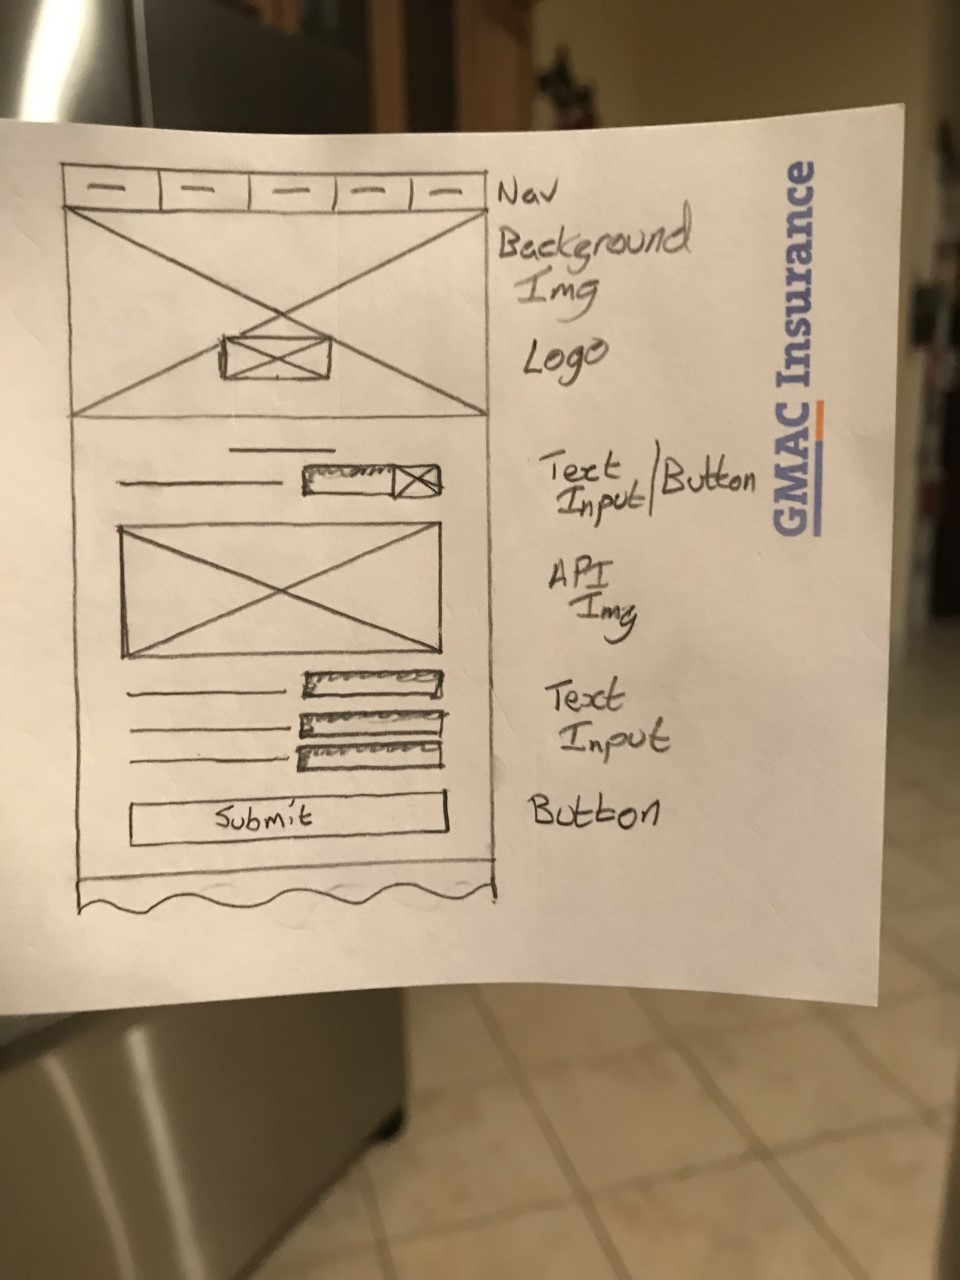 Nav
Background
Img
Logo
Text
Input/Button
API
Img
Text
Input
Submit
Button
GMAC Insurance